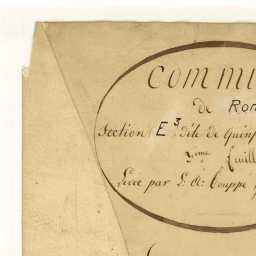 Commu
de Ron
Section E³ dite de Quenp
3ème feuill
Levé par L. A. Couppe